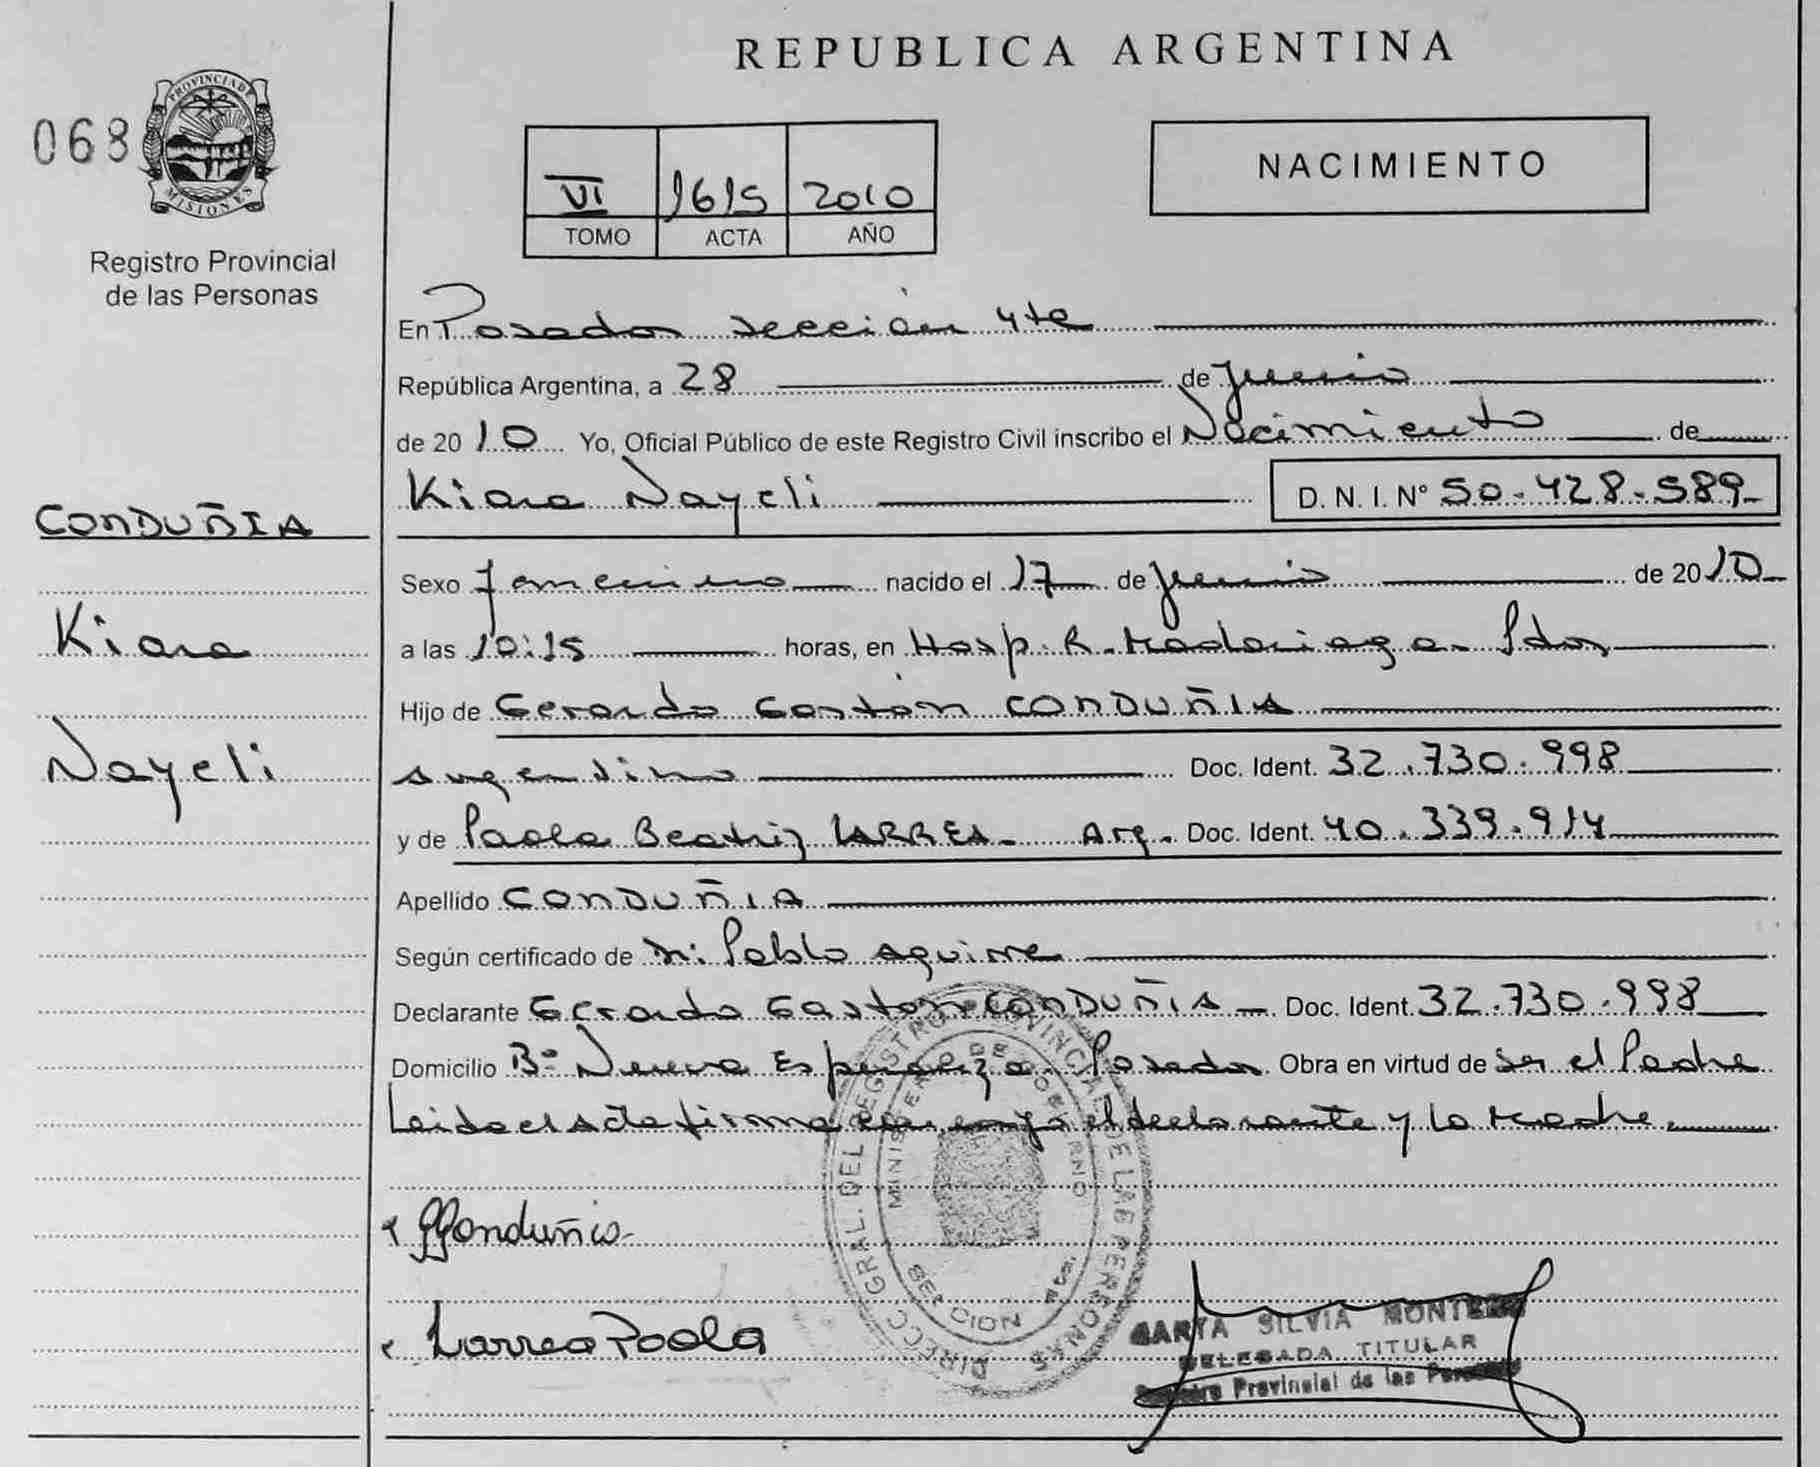 REPUBLICA ARGENTINA
068
PROVINCIA DE
MISIONES
Registro Provincial
de las Personas
VI 1615 2010
TOMO ACTA AÑO
NACIMIENTO
En Posadas sección 4ta
República Argentina, a 28 de Junio
de 2010 Yo, Oficial Público de este Registro Civil inscribo el Nacimiento de
Kiara Nayeli D. N. I. N° 50.428.589
CONDUÑIA
Kiara
Nayeli
Sexo femenino nacido el 17 de Junio de 2010
a las 10:15 horas, en Hosp. R. Madariaga - Pdas
Hijo de Gerardo Gastón CONDUÑIA
argentino Doc. Ident. 32.730.998
y de Paola Beatriz LARREA - Arg. Doc. Ident. 40.339.914
Apellido CONDUÑIA
Según certificado de Pablo Aguirre
Declarante Gerardo Gastón CONDUÑIA - Doc. Ident. 32.730.998
Domicilio B° Nueva Esperanza - Posadas Obra en virtud de Ser el Padre
Leida el Acta firma conmigo el declarante y la Madre.
Conduñia
Larrea Paola
DIRECC. GRAL. DEL REGISTRO PROVINCIAL DE LAS PERSONAS
MINISTERIO DE GOBIERNO
SECCION 4ta.
MARTA SILVIA MONTERO
DELEGADA TITULAR
Registro Provincial de las Personas